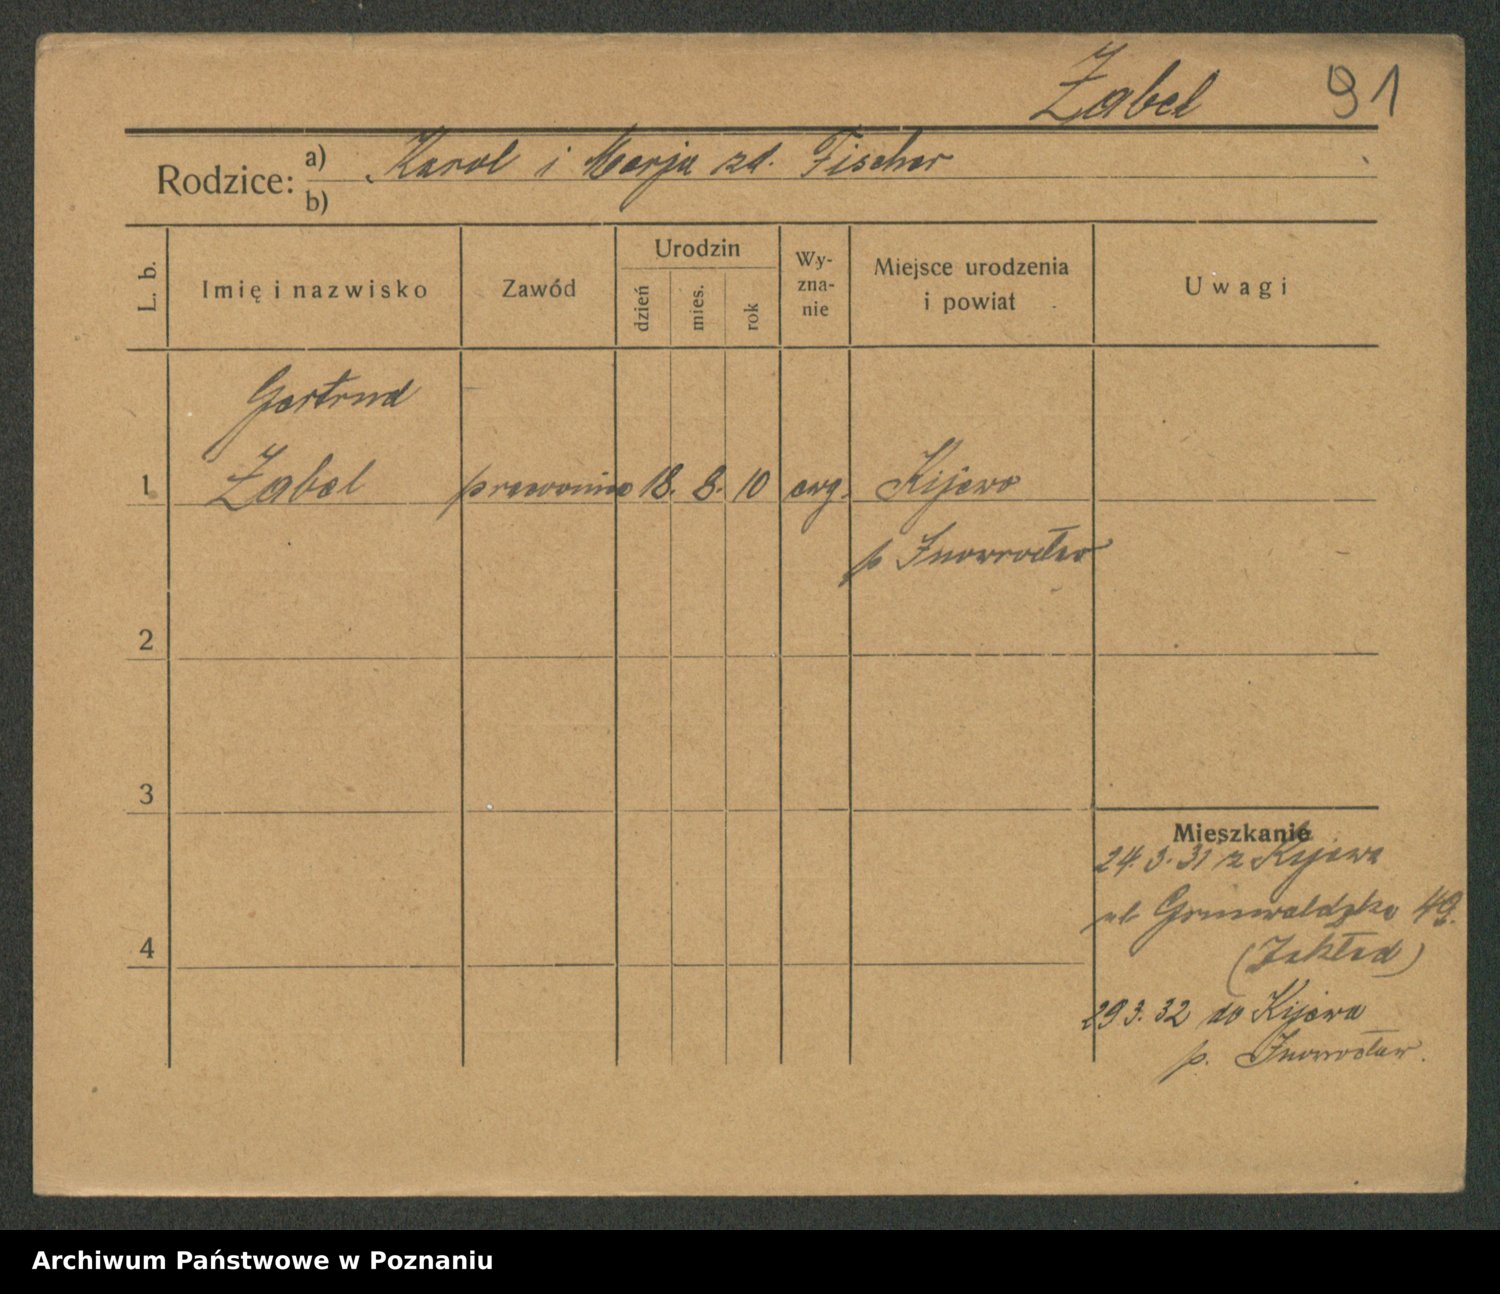 Żabel 91
Rodzice: a) Karol i Marja zd. Fischer
b)
L. b.
Imię i nazwisko
Zawód
Urodzin
dzień
mies.
rok
Wy-
zna-
nie
Miejsce urodzenia
i powiat
Uwagi
Gertrud
1 Żabel 18. 8. 10 ewg. Kijewo
p Inowrocław
2
3
4
Mieszkanie
24. 3. 31 z Kijewa
ul Grunwaldzka 49.
(Zakład)
29 3. 32 do Kijewa
p. Inowrocław.
Archiwum Państwowe w Poznaniu